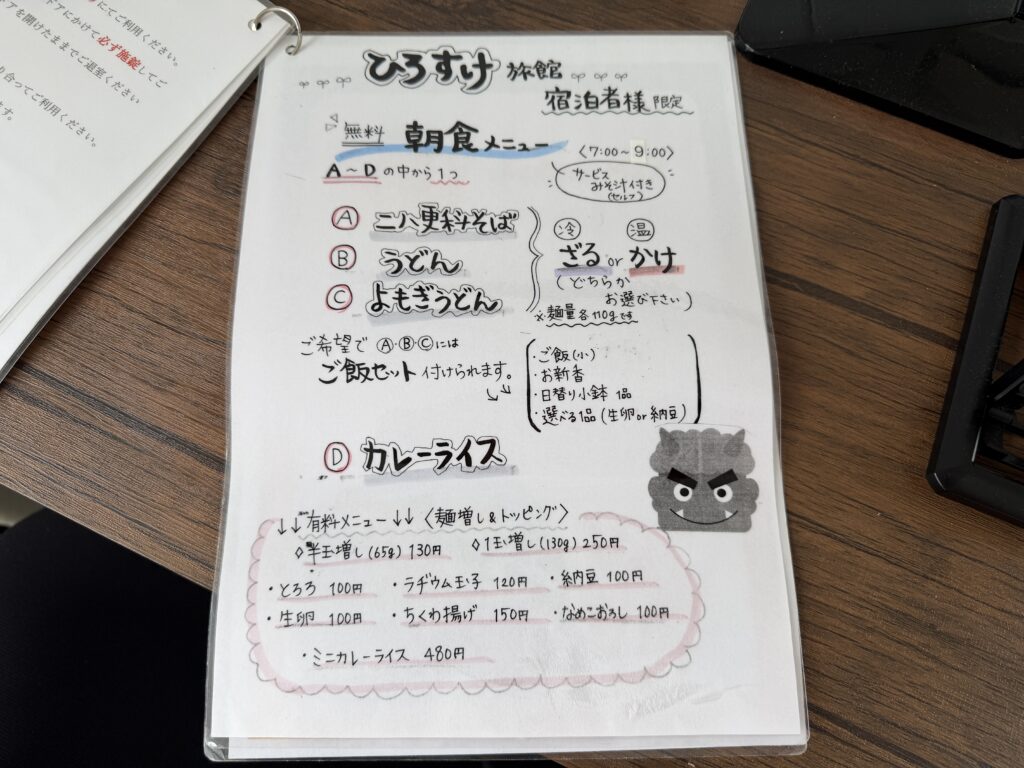 にてご利用ください。
ドアにかけて必ず施錠してご
アを開けたままでご退室ください
り合ってご利用ください。
ます。
ひろすけ 旅館
宿泊者様 限定
無料 朝食メニュー 〈7:00~9:00〉
A~Dの中から1つ
サービス
みそ汁付き
(セルフ)
Ⓐ 二八更科そば
Ⓑ うどん
Ⓒ よもぎうどん
冷 温
ざる or かけ
(どちらか
お選び下さい)
※麺量各110gです
ご希望でⒶ・Ⓑ・Ⓒには
ご飯セット付けられます。
・ご飯(小)
・お新香
・日替り小鉢 1品
・選べる1品(生卵or納豆)
Ⓓ カレーライス
↓↓有料メニュー↓↓〈麺増し&トッピング〉
◇半玉増し(65g) 130円 ◇1玉増し(130g) 250円
・とろろ 100円 ・ラヂウム玉子 120円 ・納豆 100円
・生卵 100円 ・ちくわ揚げ 150円 ・なめこおろし 100円
・ミニカレーライス 480円